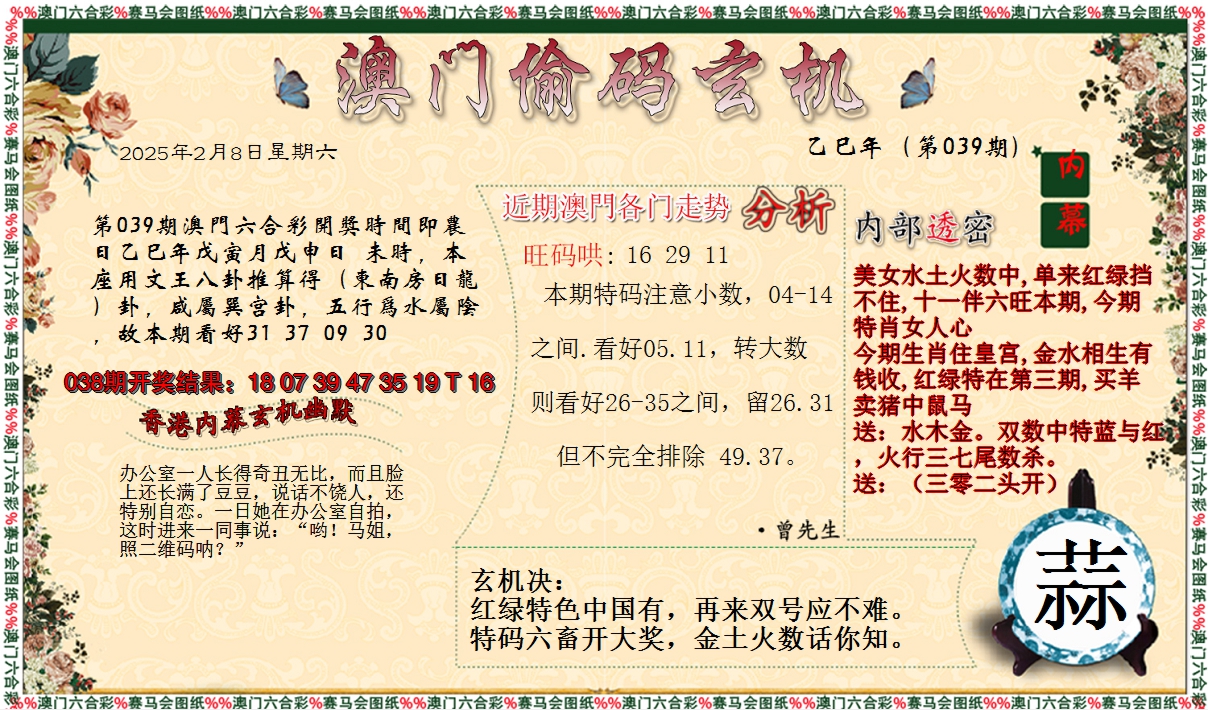 %%澳门六合彩%赛马会图纸%%澳门六合彩%赛马会图纸%%澳门六合彩%赛马会图纸%%澳门六合彩%赛马会图纸%%澳门六合彩%赛马会图纸%%澳门六合彩%赛马会图纸%%
澳门偷码玄机
2025年2月8日星期六
乙巳年（第039期）
内幕
第039期澳門六合彩開獎時間即農
日乙巳年戊寅月戊申日 未時，本
座用文王八卦推算得（東南房日龍
）卦，咸屬巽宫卦，五行爲水屬陰
，故本期看好31 37 09 30
038期开奖结果：18 07 39 47 35 19 T 16
香港内幕玄机幽默
办公室一人长得奇丑无比，而且脸
上还长满了豆豆，说话不饶人，还
特别自恋。一日她在办公室自拍，
这时进来一同事说：“哟！马姐，
照二维码呐？”
近期澳門各门走势 分析
旺码哄: 16 29 11
本期特码注意小数，04-14
之间.看好05.11，转大数
则看好26-35之间，留26.31
但不完全排除 49.37。
·曾先生
内部透密
美女水土火数中,单来红绿挡
不住,十一伴六旺本期,今期
特肖女人心
今期生肖住皇宫,金水相生有
钱收,红绿特在第三期,买羊
卖猪中鼠马
送：水木金。双数中特蓝与红
，火行三七尾数杀。
送：（三零二头开）
玄机决：
红绿特色中国有，再来双号应不难。
特码六畜开大奖，金土火数话你知。
蒜
%%澳门六合彩%赛马会图纸%%澳门六合彩%赛马会图纸%%澳门六合彩%赛马会图纸%%澳门六合彩%赛马会图纸%%澳门六合彩%赛马会图纸%%澳门六合彩%赛马会图纸%%